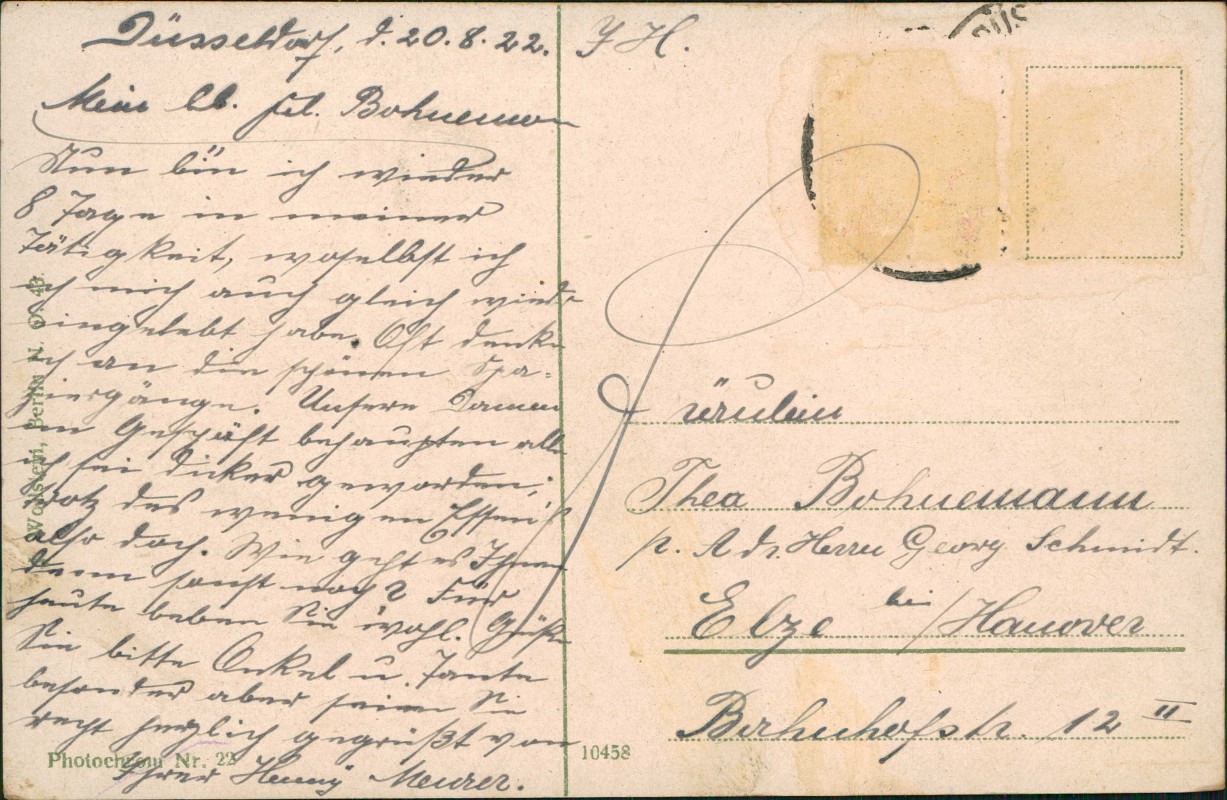 Düsseldorf, d. 20.8.22.
Mein lb. Frl. Bohnemann
Nun bin ich wieder
8 Tage in meiner
Tätigkeit, woselbst ich
ich mich auch gleich wieder
eingelebt habe. Oft denke
ich an die schönen Spa-
ziergänge. Unsere Damen
im Geschäft behaupten alle
ich sei dicker geworden,
trotz des wenigen Essen's
also doch. Wie geht es Ihnen
denn sonst noch? Für
heute leben Sie wohl. Grüßen
Sie bitte Onkel u. Tante
besonders aber seien Sie
recht herzlich gegrüßt von
Ihrer Henny Meurer.
Fräulein
Thea Bohnemann
p. Adr. Herrn Georg Schmidt.
Elze bei / Hanover
Bahnhofstr. 12 II
Wollstein, Berlin N. O. 43.
Photochrom Nr. 22
10458